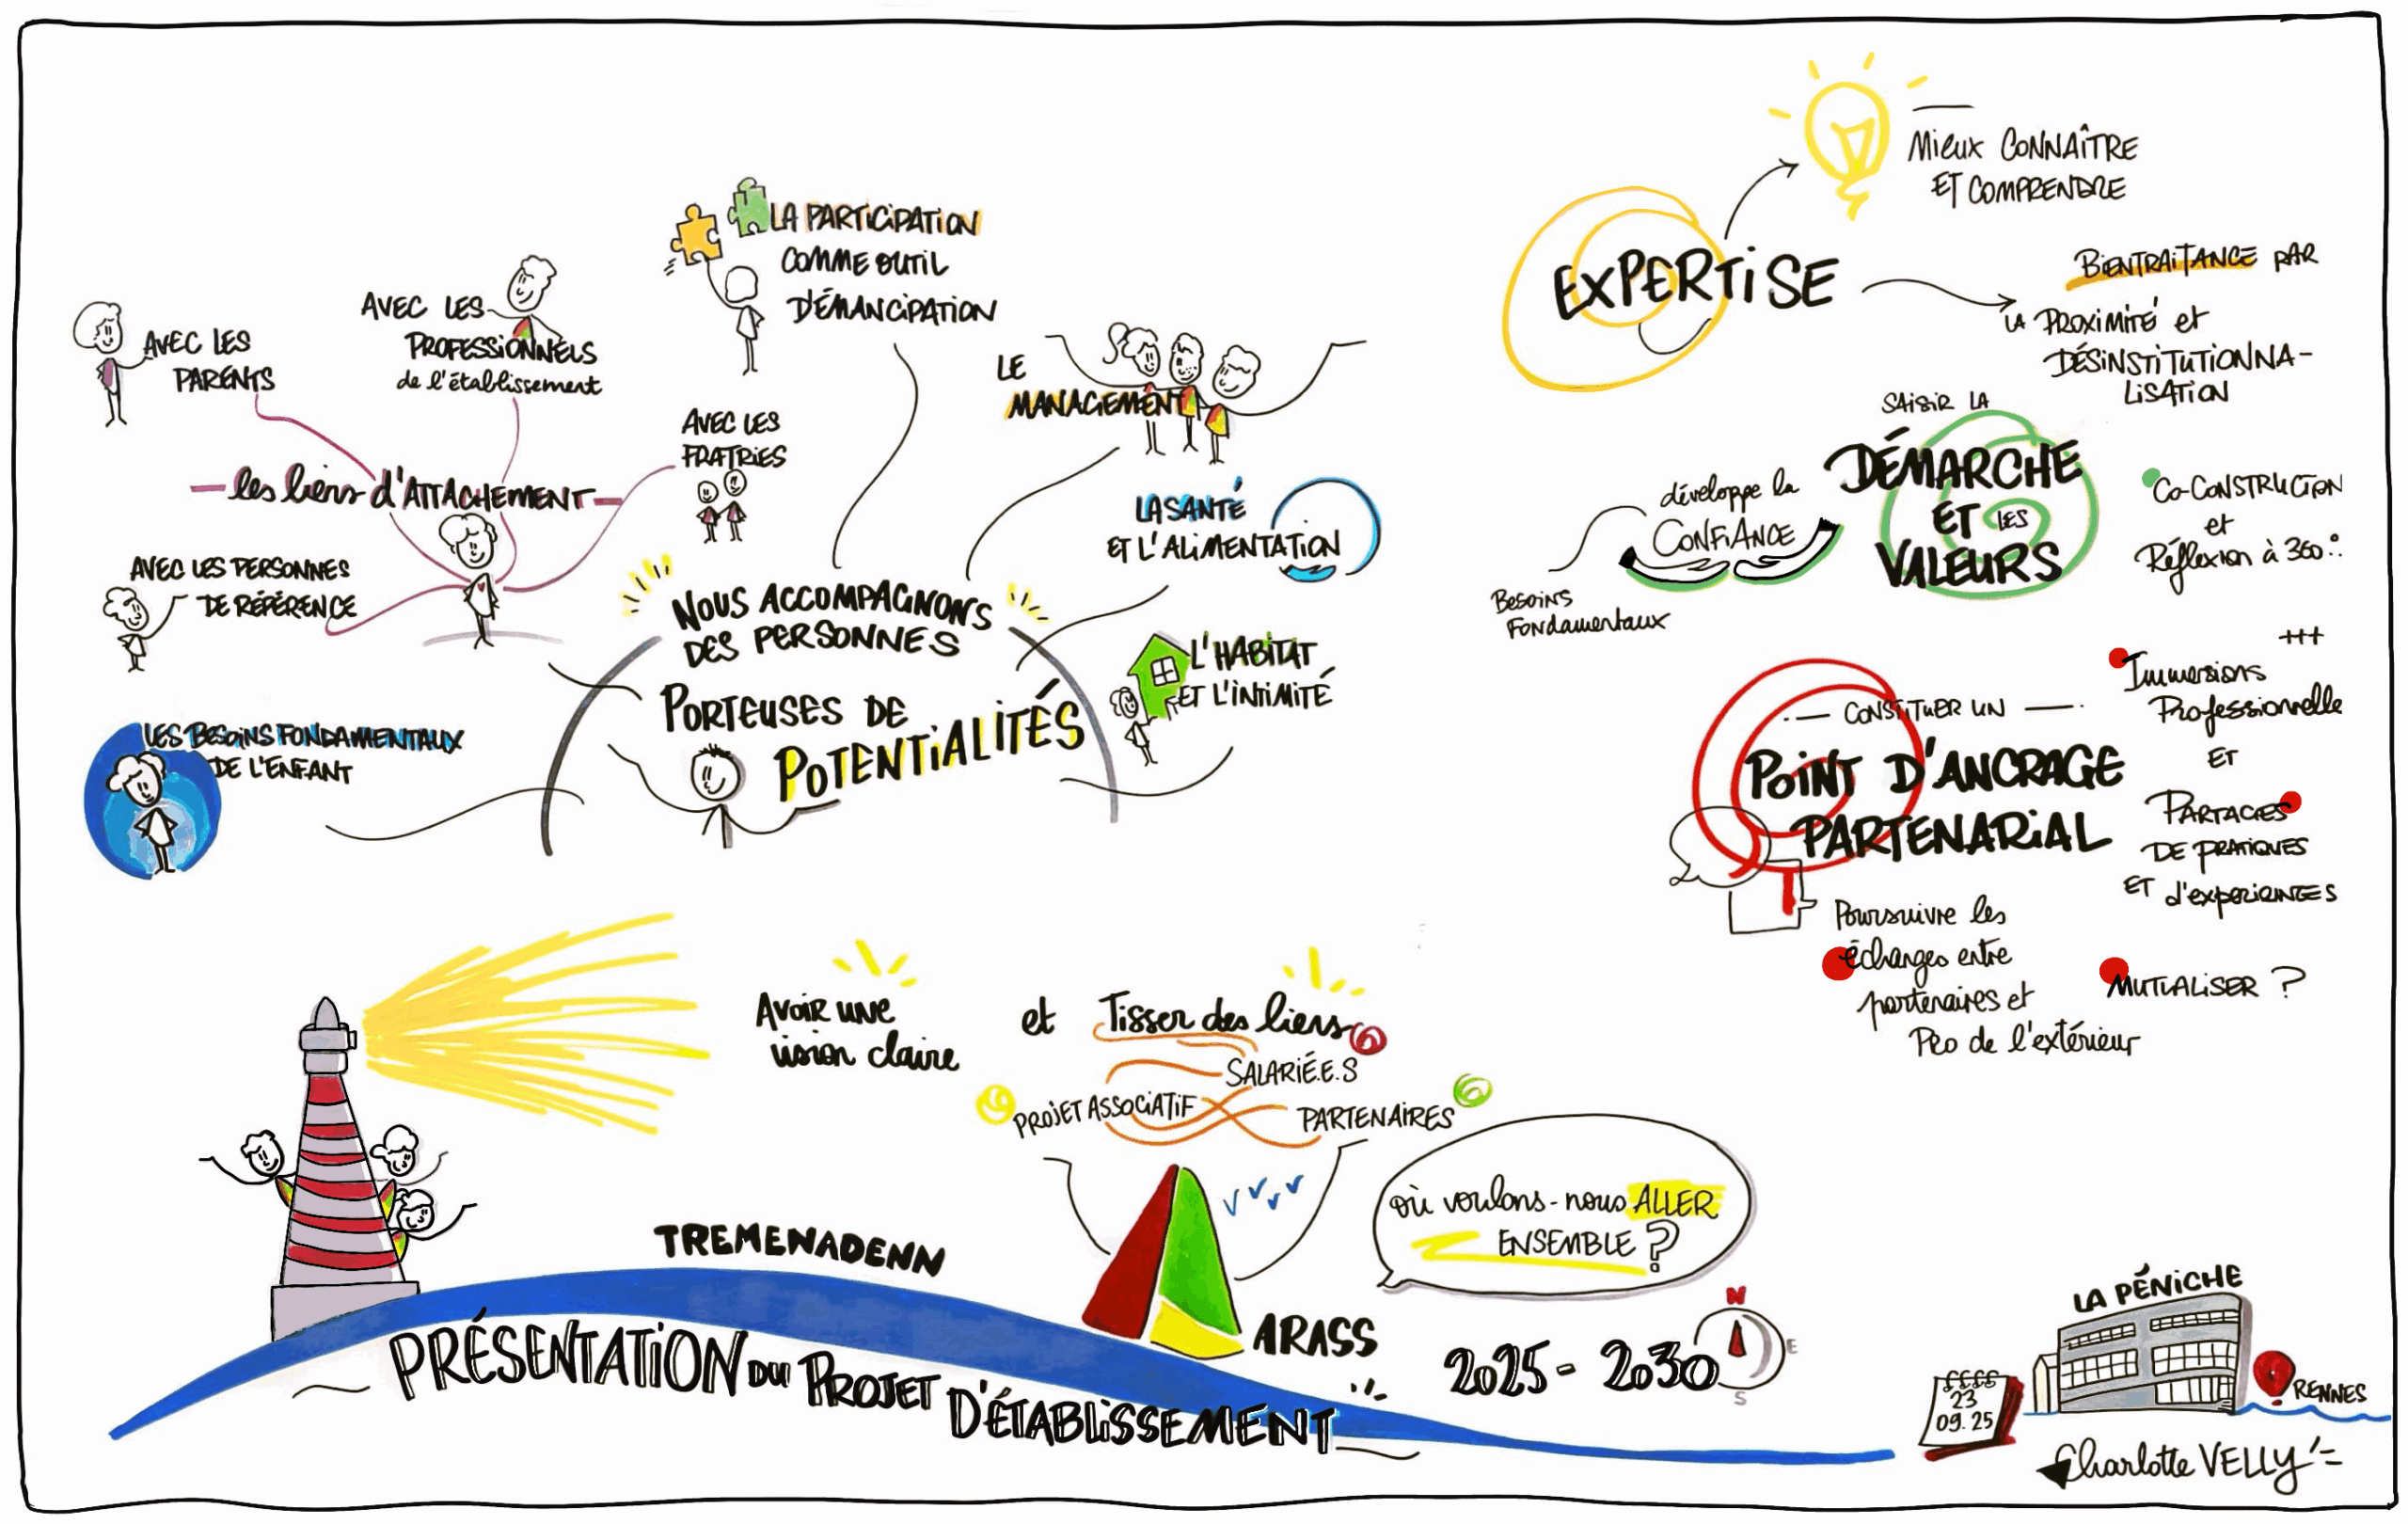 LA PARTICIPATION
COMME OUTIL
D'ÉMANCIPATION
AVEC LES
PROFESSIONNELS
de l'établissement
AVEC LES
PARENTS
AVEC LES
FRATRIES
les liens d'ATTACHEMENT
AVEC LES PERSONNES
DE RÉFÉRENCE
LES BESOINS FONDAMENTAUX
DE L'ENFANT
LE
MANAGEMENT
LA SANTÉ
ET L'ALIMENTATION
L'HABITAT
ET L'INTIMITÉ
NOUS ACCOMPAGNONS
DES PERSONNES
PORTEUSES DE
POTENTIALITÉS
MIEUX CONNAÎTRE
ET COMPRENDRE
EXPERTISE
BIENTRAITANCE PAR
LA PROXIMITÉ et
DÉSINSTITUTIONNA-
LISATION
SAISIR LA
DÉMARCHE
ET LES
VALEURS
développe la
CONFIANCE
BESOINS
FONdamentaux
CO-CONSTRUCTION
et
Réflexion à 360°
CONSTITUER UN
POINT D'ANCRAGE
PARTENARIAL
+++
Immersions
Professionnelle
ET
PARTAGES
DE PRATIQUES
ET d'expériences
Poursuivre les
échanges entre
partenaires et
PRO de l'extérieur
MUTUALISER ?
AVOIR UNE
vision claire
et Tisser des liens
SALARIÉ.E.S
PROJET ASSOCIATIF
PARTENAIRES
où voulons-nous ALLER
ENSEMBLE ?
TREMENADENN
ARASS
PRÉSENTATION DU PROJET
D'ÉTABLISSEMENT
2025 - 2030
N
E
S
LA PÉNICHE
RENNES
23
09.25
Charlotte VELLY